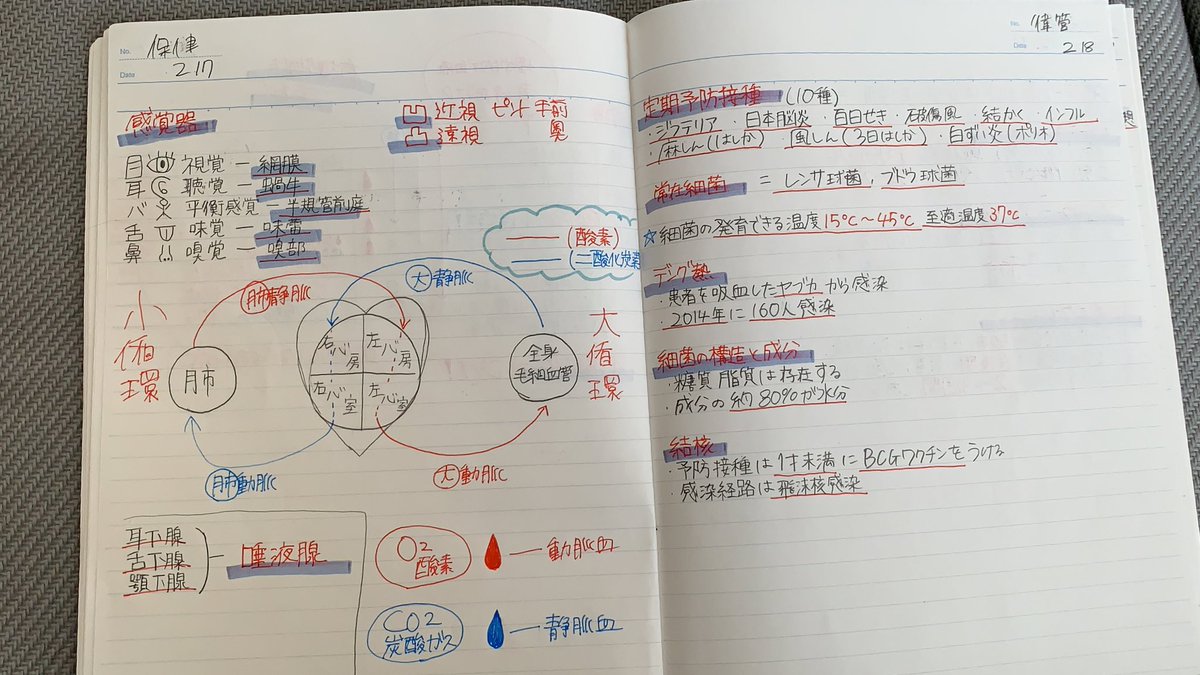 No. 保健
Date 2.17
感覚器
凹 近視 ピント 手前
凸 遠視 奥
目 視覚 ー 網膜
耳 聴覚 ー 蝸牛
バ 平衡感覚 ー 半規管前庭
舌 味覚 ー 味蕾
鼻 嗅覚 ー 嗅部
(酸素)
(二酸化炭素
小循環
肺静脈
大静脈
大循環
肺
右心房
左心房
右心室
左心室
全身
毛細血管
肺動脈
大動脈
耳下腺
舌下腺
顎下腺
唾液腺
O2
酸素
動脈血
CO2
炭酸ガス
静脈血
No. 衛管
Date 2.18
定期予防接種 (10種)
・ジフテリア ・日本脳炎 ・百日せき ・破傷風 ・結かく ・インフル
・麻しん(はしか) 風しん(3日はしか) ・白ずい炎(ポリオ)
常在細菌 = レンサ球菌, ブドウ球菌
☆細菌の発育できる温度15℃〜45℃ 至適温度37℃
デング熱
・患者を吸血したヤブカから感染
・2014年に160人感染
細菌の構造と成分
・糖質 脂質は存在する
・成分の約80%が水分
結核
・予防接種は1才未満にBCGワクチンをうける
・感染経路は飛沫核感染